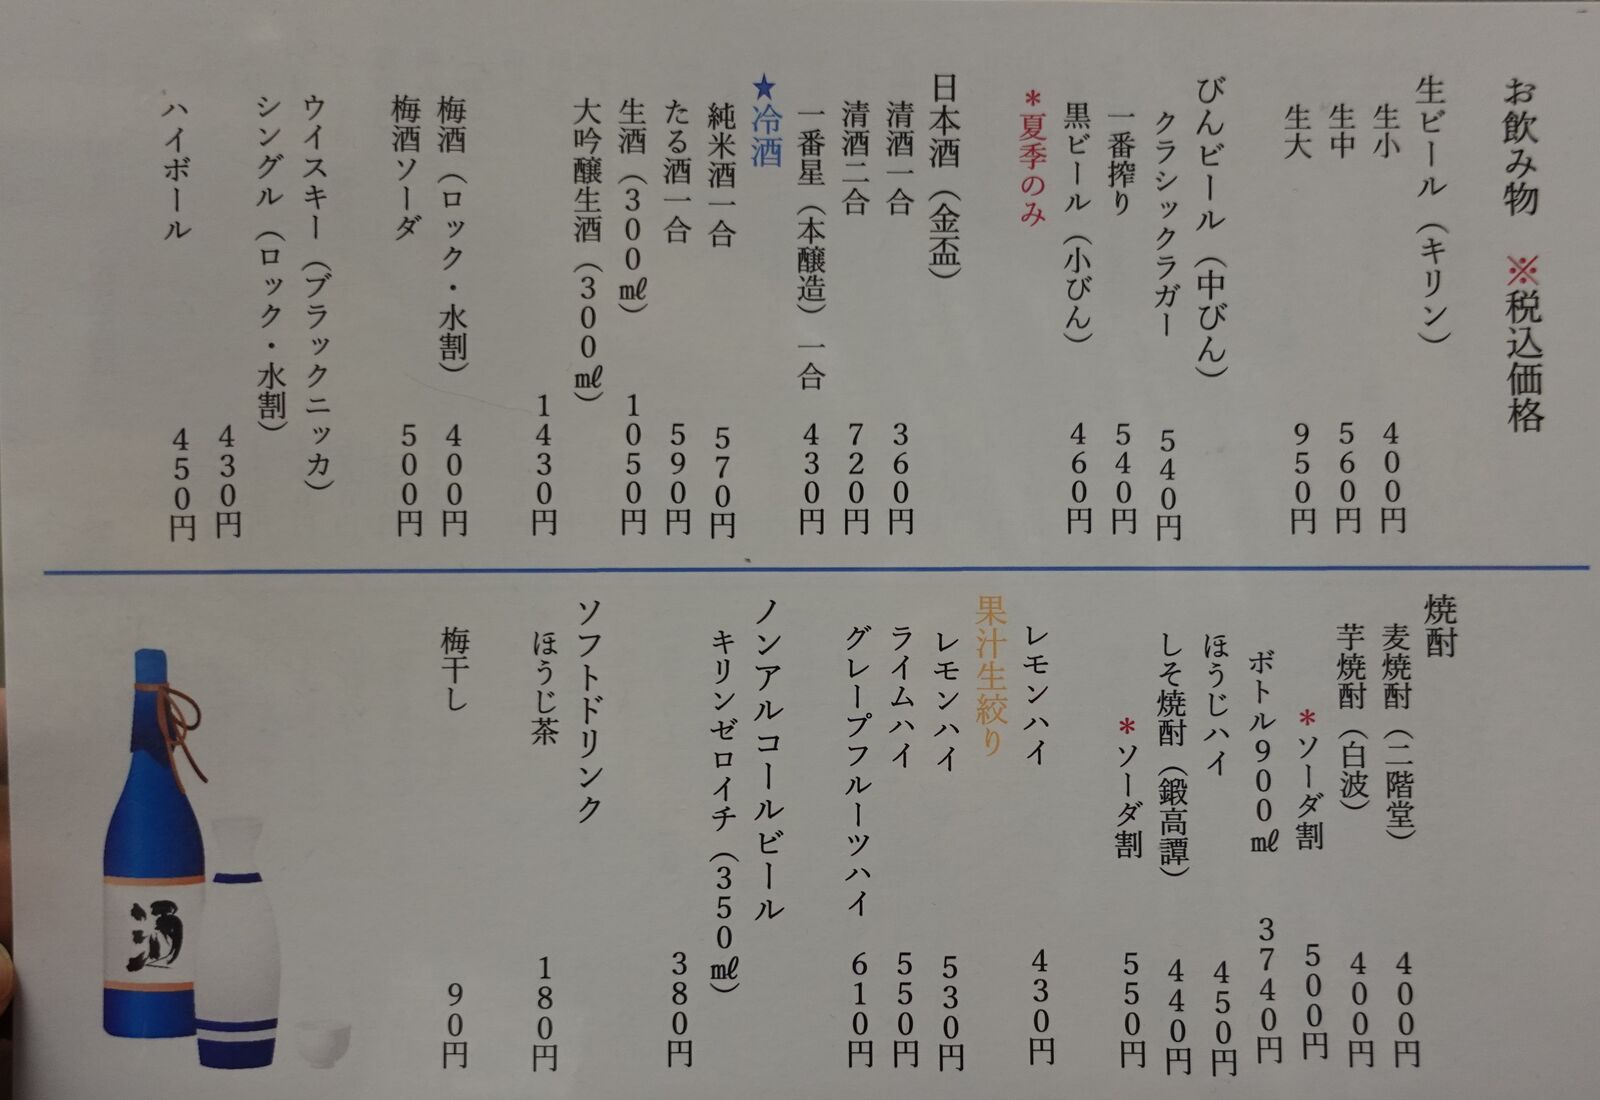 お飲み物 ※税込価格
生ビール（キリン）
生小 400円
生中 560円
生大 950円
びんビール（中びん）
クラシックラガー 540円
一番搾り 540円
黒ビール（小びん） 460円
＊夏季のみ
日本酒（金盃）
清酒一合 360円
清酒二合 720円
一番星（本醸造）一合 430円
★冷酒
純米酒一合 570円
たる酒一合 590円
生酒（300㎖） 1050円
大吟醸生酒（300㎖）
1430円
梅酒（ロック・水割） 400円
梅酒ソーダ 500円
ウイスキー（ブラックニッカ）
シングル（ロック・水割）
430円
ハイボール 450円
焼酎
麦焼酎（二階堂） 400円
芋焼酎（白波） 400円
＊ソーダ割 500円
ボトル900㎖ 3740円
ほうじハイ 450円
しそ焼酎（鍛高譚） 440円
＊ソーダ割 550円
レモンハイ 430円
果汁生絞り
レモンハイ 530円
ライムハイ 550円
グレープフルーツハイ 610円
ノンアルコールビール
キリンゼロイチ（350㎖）
380円
ソフトドリンク
ほうじ茶 180円
梅干し 90円
酒